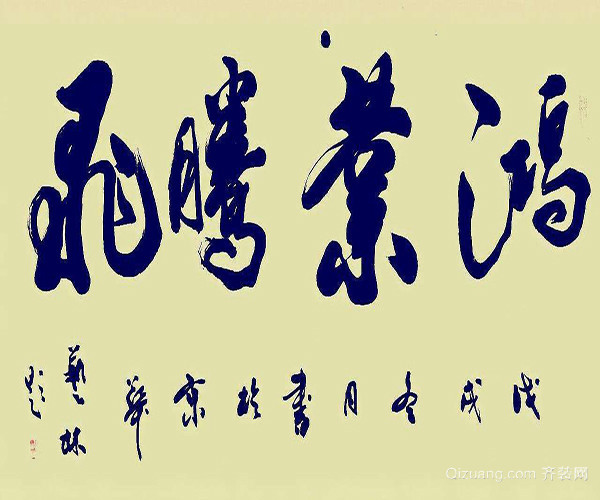 鴻業騰飛
戊戌冬月書於京華
藝林
題
Qizuang.com 齐装网